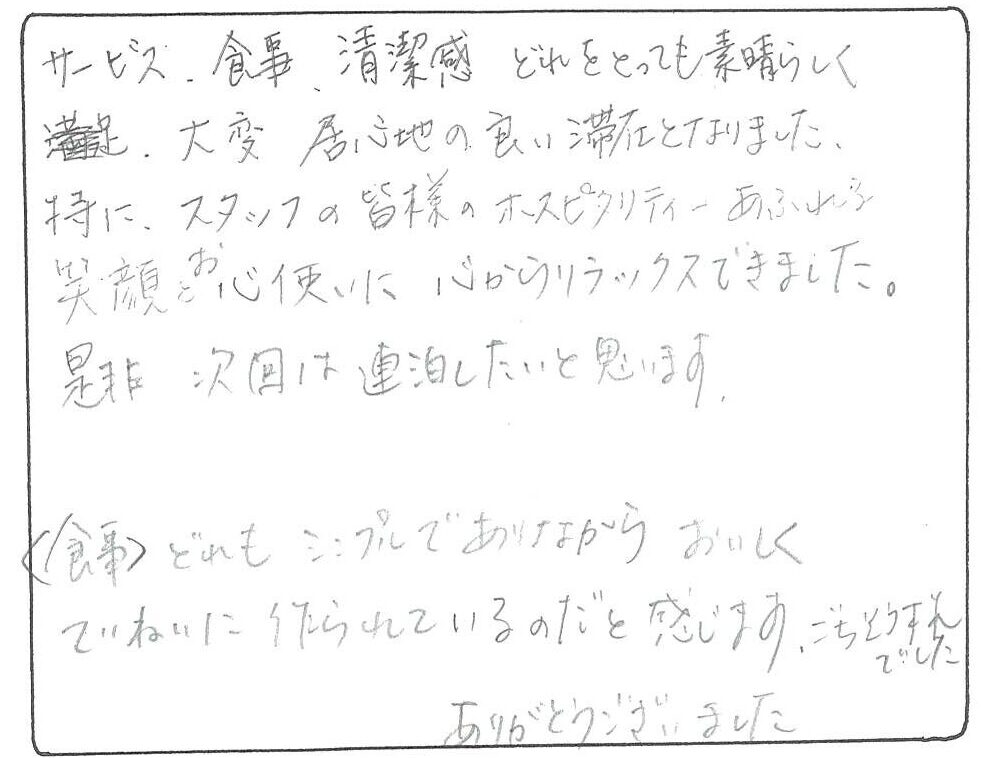 サービス、食事、清潔感 どれをとっても素晴らしく
大変 居心地の良い滞在となりました、
特に、スタッフの皆様のホスピタリティーあふれる
笑顔とお心使いに 心からリラックスできました。
是非 次回は連泊したいと思います、
〈食事〉どれも シンプルでありながら おいしく
ていねいに作られているのだと感じます、ごちそう様
でした
ありがとうございました